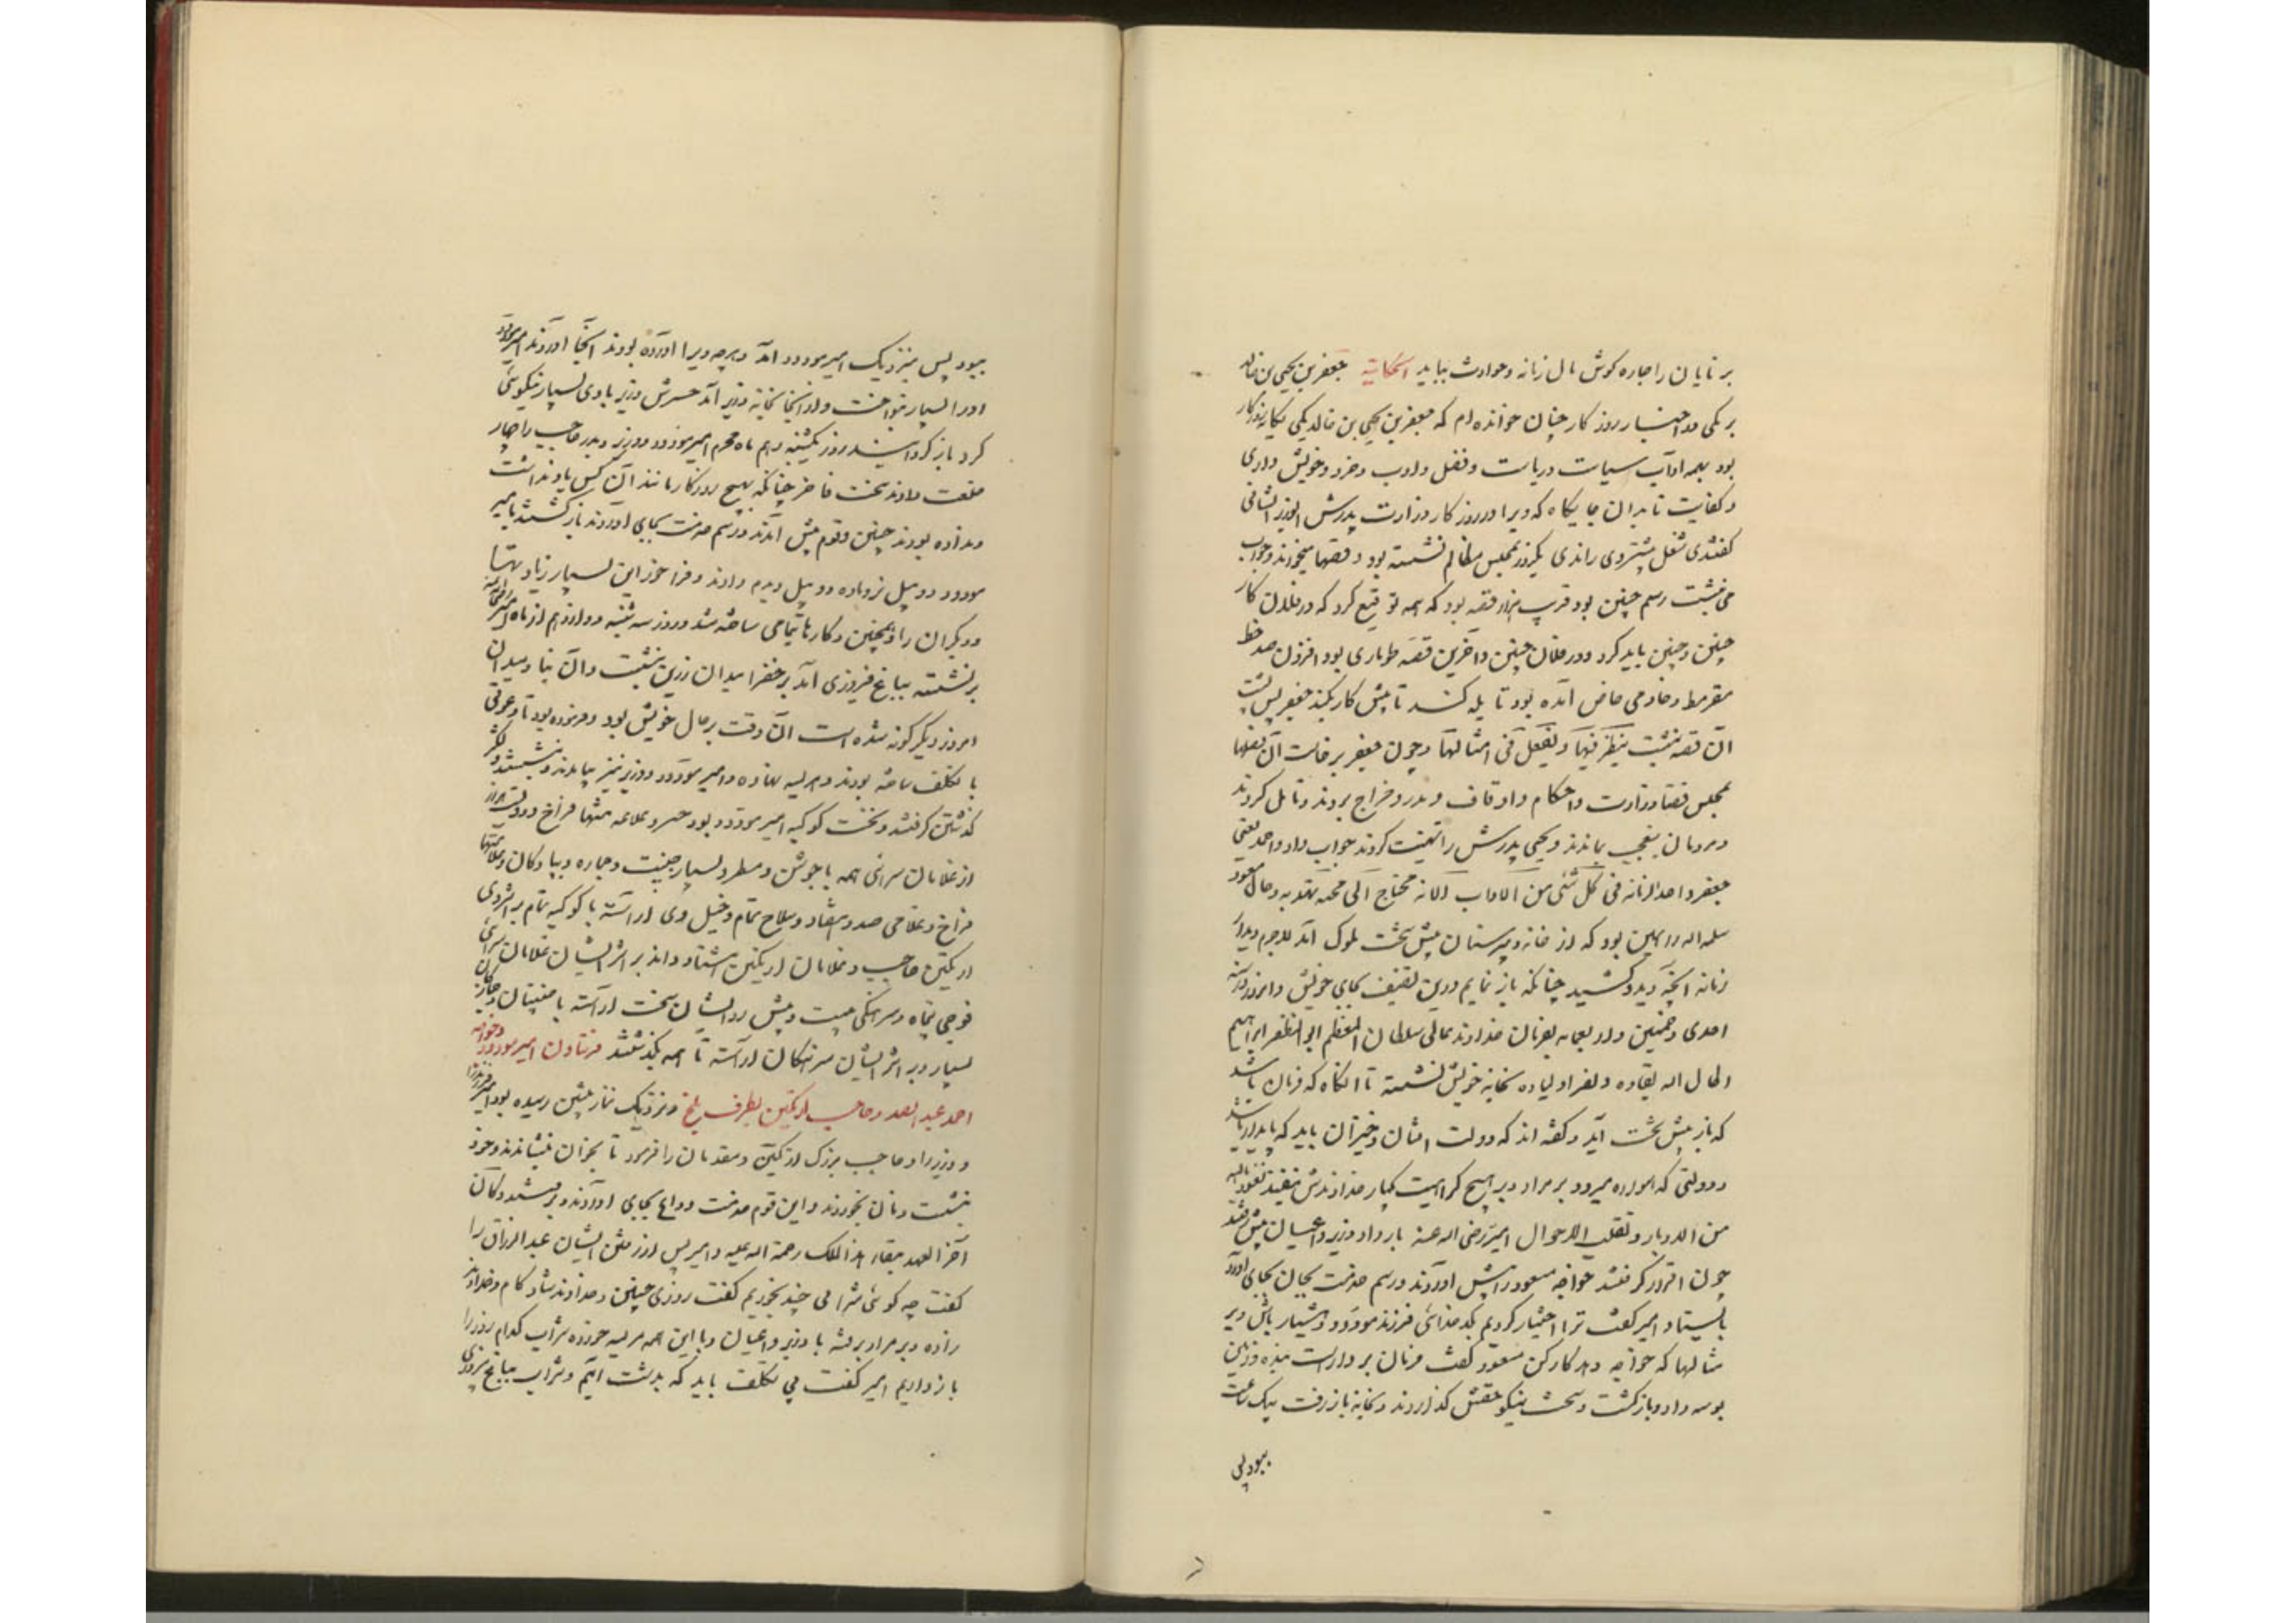 برنایان را چاره گوش مال زمانه و حوادث بباید الحکایة جعفر بن یحیی بن خالد
برمکی در اخبار روزگار چنان خوانده‌ام که جعفر بن یحیی بن خالد برمکی یکانه روزگار
بود بهمه اداب سیاست و ریاست و فضل و ادب و خرد و خویشتن‌داری
و کفایت تا بدان جایگاه که ویرا در روزگار وزارت پدرش الوزیر الثانی
گفتندی و شغل بیشتر وی راندی یکروز بمجلس مظالم نشسته بود و قصه‌ها میخواند و جواب
می‌نبشت رسم چنین بود قریب هزار قصه بود که همه توقیع کرد که در فلان کار
چنین و چنین باید کرد و در فلان چنین و آخرین قصه طوماری بود افزون صد خط
مقرمط و خادمی خاص آمده بود تا یله کند تا بیش کار نکند جعفر پس پشت
آن قصه نبشت ینظر فیها و یفعل فی امثالها و چون جعفر برخاست آن قصها
بمجلس قضا و وزارت و احکام و اوقاف و نذر و خراج بردند و تامل کردند
و مردمان بتعجب بماندند و یحیی پدرش را تهنیت کردند جواب داد و احمد یعنی
جعفر واحد زمانه فی کل شیء من الاداب الا انه محتاج الی محنة تهذبه و حال مسعود
سلمه الله همین بود که از خانه و دبیرستان پیش تخت ملوک آمد لاجرم دید از
زمانه آنچه دید و کشید چنانکه باز نمایم درین تصنیف بجای خویش و امروز در سنه
احدی و خمسین و اربعمایه بفرمان خداوند عالم سلطان المعظم ابوالمظفر ابراهیم
اطال الله بقاءه و نصر اولیاءه بخانه خویش نشسته تا آنگاه که فرمان باشد
که باز پیش تخت آید و گفته‌اند که دولت افتان و خیزان باید که پایدار باشد
و دولتی که هموار میرود بر مراد و بی هیچ کراهیت یکبار خداوندش بیفتد نعوذ بالله
من الادبار و تقلب الاحوال امیر رضی الله عنه بار داد و وزیر و اعیان پیش رفتند
چون قرار گرفتند خواجه مسعود را پیش اوردند و رسم خدمت بجای آورد
بایستاد امیر گفت ترا اختیار کردیم بکدخدائی فرزند مودود هشیار باش و بر
مثالها که خواجه دهد کار کن مسعود گفت فرمان بردار است بنده و زمین
بوسه داد و بازگشت و سخت نیکو حقش گذاردند و بخانه باز رفت یک ساعت
ببود پس
ببود پس بنزدیک امیر مودود آمد و هر چه ویرا اورده بودند آنجا آوردند امیر مودود
او را بسیار بنواخت و از آنجا بخانه وزیر آمد خسرش وزیر با وی بسیار نیکوئی
کرد و بازگردانید روز یکشنبه دهم ماه محرم امیر مودود و وزیر و بدر حاجب را چهار
خلعت دادند سخت فاخر چنانکه بهیچ روزگار مانند آن کس یاد نداشت
و نداده بودند چنین و قوم پیش آمدند و رسم خدمت بجای آوردند بازگشتند بامیر
مودود دو پیل نر و ماده و دو پیل دیدم دادند و فراخور این بسیار زیادتها
و دیگران را همچنین و کارها بتمامی ساخته شد و روز سه شنبه دوازدهم از ماه امیر
برنشسته بباغ فیروزی آمد بر خضرا میدان زرین بنشست و آن بنا و میدان
امروز دیگرگونه شده است آن وقت بر حال خویش بود و فرموده بود تا دعوتی
با تکلف ساخته بودند و هریسه نهاده و امیر مودود و وزیر نیز بیامدند و بنشستند و لشکر
گذشتن گرفتند و نخست کوکبه امیر مودود بود چتر و علامه منتها فراخ و دویست مرد از
از غلامان سرائی همه با جوشن و مطرد و بسیار جنیبت و جمازه و پیادگان و علامتها
فراخ و غلامی صد و هفتاد و سلاح تمام و خیل وی آراسته با کوکبه تمام بر اثر وی
ارتکین حاجب و غلامان ارتکین هشتاد و اند بر اثر ایشان غلامان سرائی
فوجی پنجاه و سرهنگی بیست پیش رو ایشان سخت آراسته با جنیبتان و جمازگان
بسیار و بر اثر ایشان سرهنگان آراسته تا همه بگذشتند فرستادن امیر مودود و خواجه
احمد عبدالصمد و حاجب ارتکین بطرف بلخ و نزدیک نماز پیشین رسیده بود امیر فرزند را
و وزیر را و حاجب بزرگ ارتکین و مقدمان را فرمود تا بخوان بنشاندند و خود
بنشست و نان بخوردند و این قوم خدمت وداع بجای اوردند و برفتند و کان
آخر العهد بلقاء هذا الملک رحمة الله علیه و امیر پس از رفتن ایشان عبدالرزاق را
گفت چه گوئی شرابی چند بخوریم گفت روزی چنین و خداوند شاد کام و خداوند
زاده بر مراد برفته با وزیر و اعیان و با این همه هریسه خورده شراب کدام روز را
باز داریم امیر گفت بی تکلف باید که بدشت آئیم و شراب بباغ فیروزی